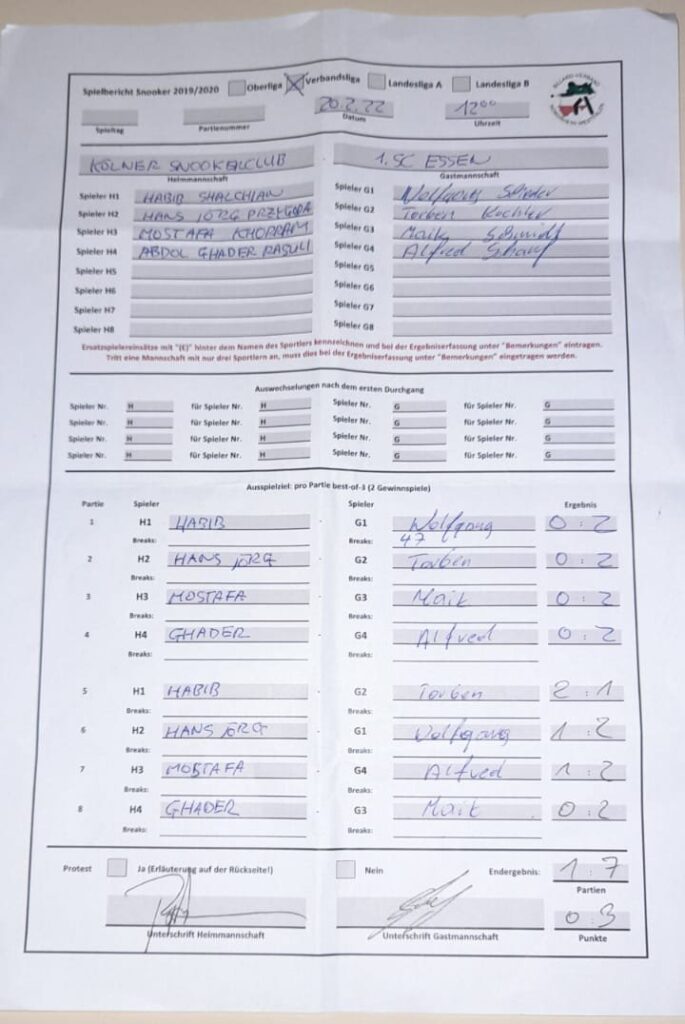 Spielbericht Snooker 2019/2020 Oberliga Verbandsliga Landesliga A Landesliga B
20.2.22 12⁰⁰
Spieltag Partienummer Datum Uhrzeit
KÖLNER SNOOKERCLUB - 1. SC ESSEN
Heimmannschaft Gastmannschaft
Spieler H1 HABIB SHALCHIAN Spieler G1 Wolfgang
Spieler H2 HANS JÖRG PRZYGODA Spieler G2 Torben Kochler
Spieler H3 MOSTAFA KHORRAM Spieler G3 Maik Schmidt
Spieler H4 ABDOL GHADER RASULI Spieler G4 Alfred Scharf
Spieler H5 Spieler G5
Spieler H6 Spieler G6
Spieler H7 Spieler G7
Spieler H8 Spieler G8
Ersatzspielereinsätze mit "(E)" hinter dem Namen des Sportlers kennzeichnen und bei der Ergebniserfassung unter "Bemerkungen" eintragen.
Tritt eine Mannschaft mit nur drei Sportlern an, muss dies bei der Ergebniserfassung unter "Bemerkungen" eingetragen werden.
Auswechselungen nach dem ersten Durchgang
Spieler Nr. H für Spieler Nr. H Spieler Nr. G für Spieler Nr. G
Spieler Nr. H für Spieler Nr. H Spieler Nr. G für Spieler Nr. G
Spieler Nr. H für Spieler Nr. H Spieler Nr. G für Spieler Nr. G
Spieler Nr. H für Spieler Nr. H Spieler Nr. G für Spieler Nr. G
Ausspielziel: pro Partie best-of-3 (2 Gewinnspiele)
Partie Spieler Spieler Ergebnis
1 H1 HABIB - G1 Wolfgang 0 : 2
Breaks: Breaks: 47
2 H2 HANS JÖRG - G2 Torben 0 : 2
Breaks: Breaks:
3 H3 MOSTAFA - G3 Maik 0 : 2
Breaks: Breaks:
4 H4 GHADER - G4 Alfred 0 : 2
Breaks: Breaks:
5 H1 HABIB - G2 Torben 2 : 1
Breaks: Breaks:
6 H2 HANS JÖRG - G1 Wolfgang 1 : 2
Breaks: Breaks:
7 H3 MOSTAFA - G4 Alfred 1 : 2
Breaks: Breaks:
8 H4 GHADER G3 Maik 0 : 2
Breaks: Breaks:
Protest Ja (Erläuterung auf der Rückseite!) Nein Endergebnis: 1 : 7
Partien
0 : 3
Unterschrift Heimmannschaft Unterschrift Gastmannschaft Punkte